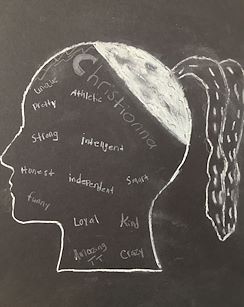 Unique
Christionna
Pretty
Athletic
Strong
intellgent
Honest
independent
Smart
Funny
Loyal
Kind
Amazing
TT
Crazy